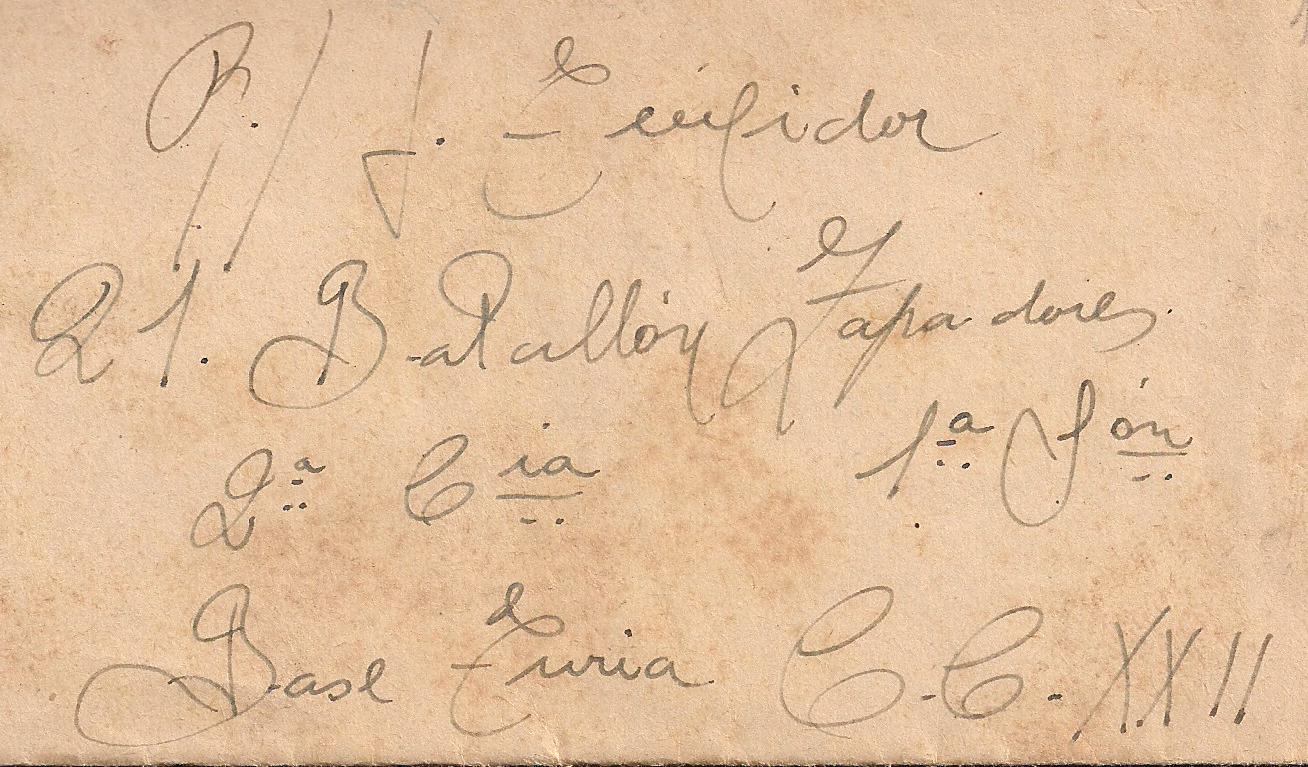 R./ J. Teixidor
21. Batallón Zapadores
2ª Cia 1ª Són
Base Turia C.C. XXII